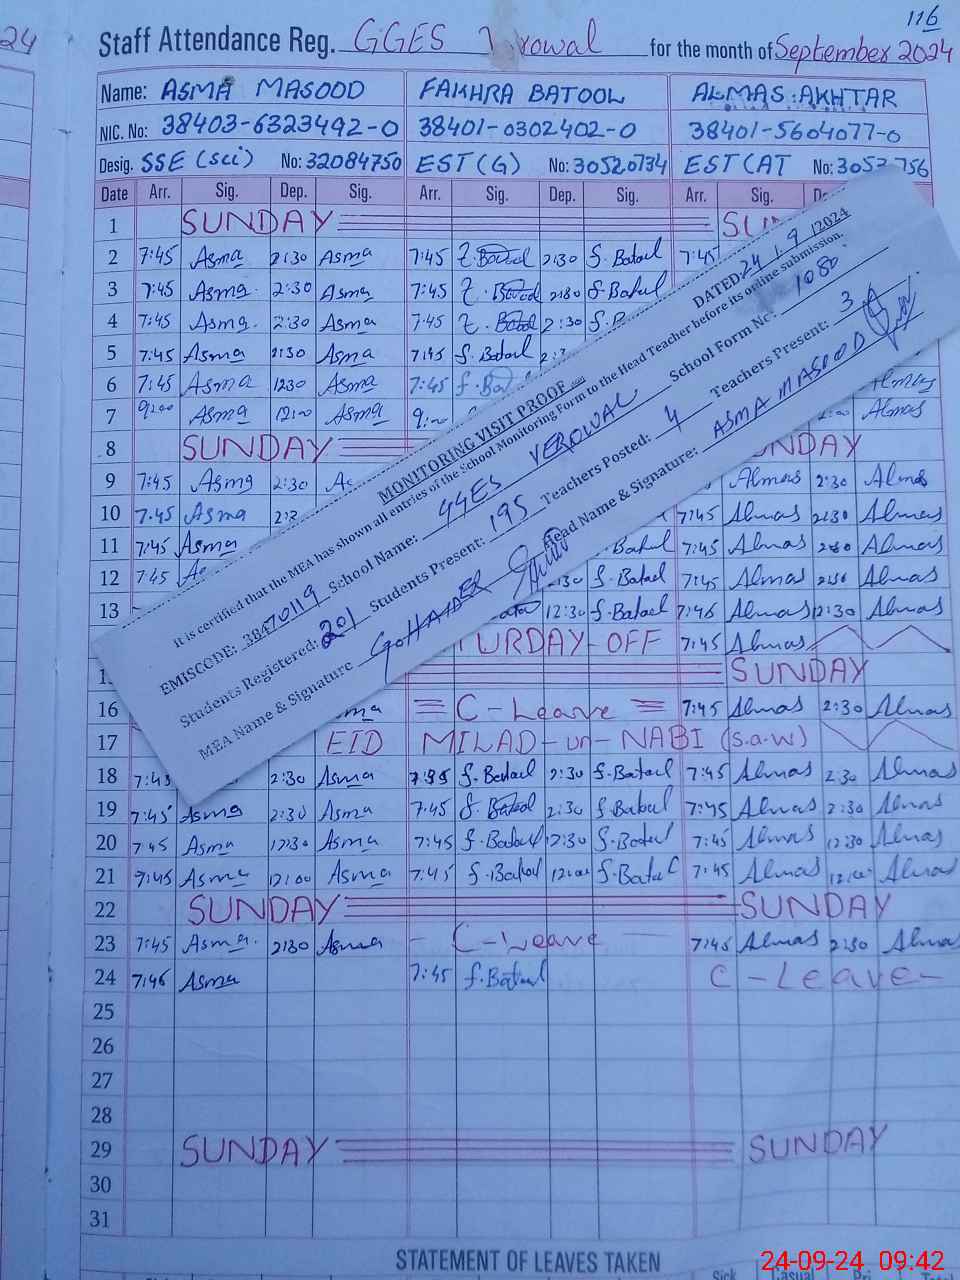 24
116
Staff Attendance Reg. GGES Verowal for the month of September 2024
Name: ASMA MASOOD FAKHRA BATOOL ALMAS AKHTAR
NIC. No: 38403-6323492-0 38401-0302402-0 38401-5604077-0
Desig. SSE (Sci) No: 32084750 EST (G) No: 30520734 EST (AT No:
Date Arr. Sig. Dep. Sig. Arr. Sig. Dep. Sig. Arr. Sig.
1 SUNDAY
2 7:45 Asma 2:30 Asma 7:45 f. Batool 2:30 f. Batool 7:45
3 7:45 Asma 2:30 Asma 7:45 2:30 f. Batool
4 7:45 Asma 2:30 Asma 7:45 2:30
5 7:45 Asma 2:30 Asma 7:45 f. Batool
6 7:45 Asma 1230 Asma 7:45
7 9:00 Asma 12:00 Asma 9:00 Almas
8 SUNDAY
9 7:45 Asma 2:30 Almas 2:30 Almas
10 7:45 Asma 7:45 Almas 2:30 Almas
11 7:45 Asma Batool 7:45 Almas 2:30 Almas
12 7:45 f. Batool 7:45 Almas 2:30 Almas
13 12:30 f. Batool 7:46 Almas 12:30 Almas
OFF 7:45 Almas
SUNDAY
16 C-Leave 7:45 Almas 2:30 Almas
17 EID MILAD-un-NABI (S.a.w)
18 7:45 2:30 Asma 7:35 f. Batool 2:30 f. Batool 7:45 Almas 2:30 Almas
19 7:45 Asma 2:30 Asma 7:45 f. Batool 2:30 f. Batool 7:45 Almas 2:30 Almas
20 7 45 Asma 12:30 Asma 7:45 f. Batool 12:30 f. Batool 7:45 Almas 12:30 Almas
21 Asma 12:00 Asma 7:45 f. Batool 12:00 f. Batool 7:45 Almas 12:00 Almas
22 SUNDAY SUNDAY
23 7:45 Asma 2:30 Asma C-Leave 7:45 Almas 2:30 Almas
24 7:46 Asma 7:45 f. Batool C-Leave
25
26
27
28
29 SUNDAY SUNDAY
30
31
STATEMENT OF LEAVES TAKEN
MONITORING VISIT PROOF DATED: 24 / 9 /2024
It is certified that the MEA has shown all entries of the School Monitoring Form to the Head Teacher before its online submission.
EMISCODE: 38470119 School Name: GGES VEROWAL School Form No: 1080
Students Registered: 201 Students Present: 195 Teachers Posted: 4 Teachers Present: 3
MEA Name & Signature Head Name & Signature: ASMA MASOOD
24-09-24 09:42